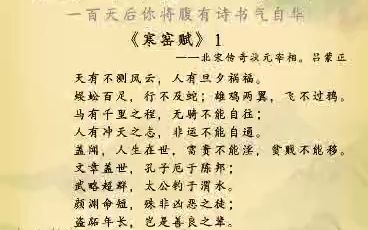 一百天后你将腹有诗书气自华
《寒窑赋》1
——北宋传奇状元宰相。吕蒙正
天有不测风云，人有旦夕祸福。
蜈蚣百足，行不及蛇；雄鸡两翼，飞不过鸦。
马有千里之程，无骑不能自往；
人有冲天之志，非运不能自通。
盖闻，人生在世，富贵不能淫，贫贱不能移。
文章盖世，孔子厄于陈邦；
武略超群，太公钓于渭水。
颜渊命短，殊非凶恶之徒；
盗跖年长，岂是善良之辈。